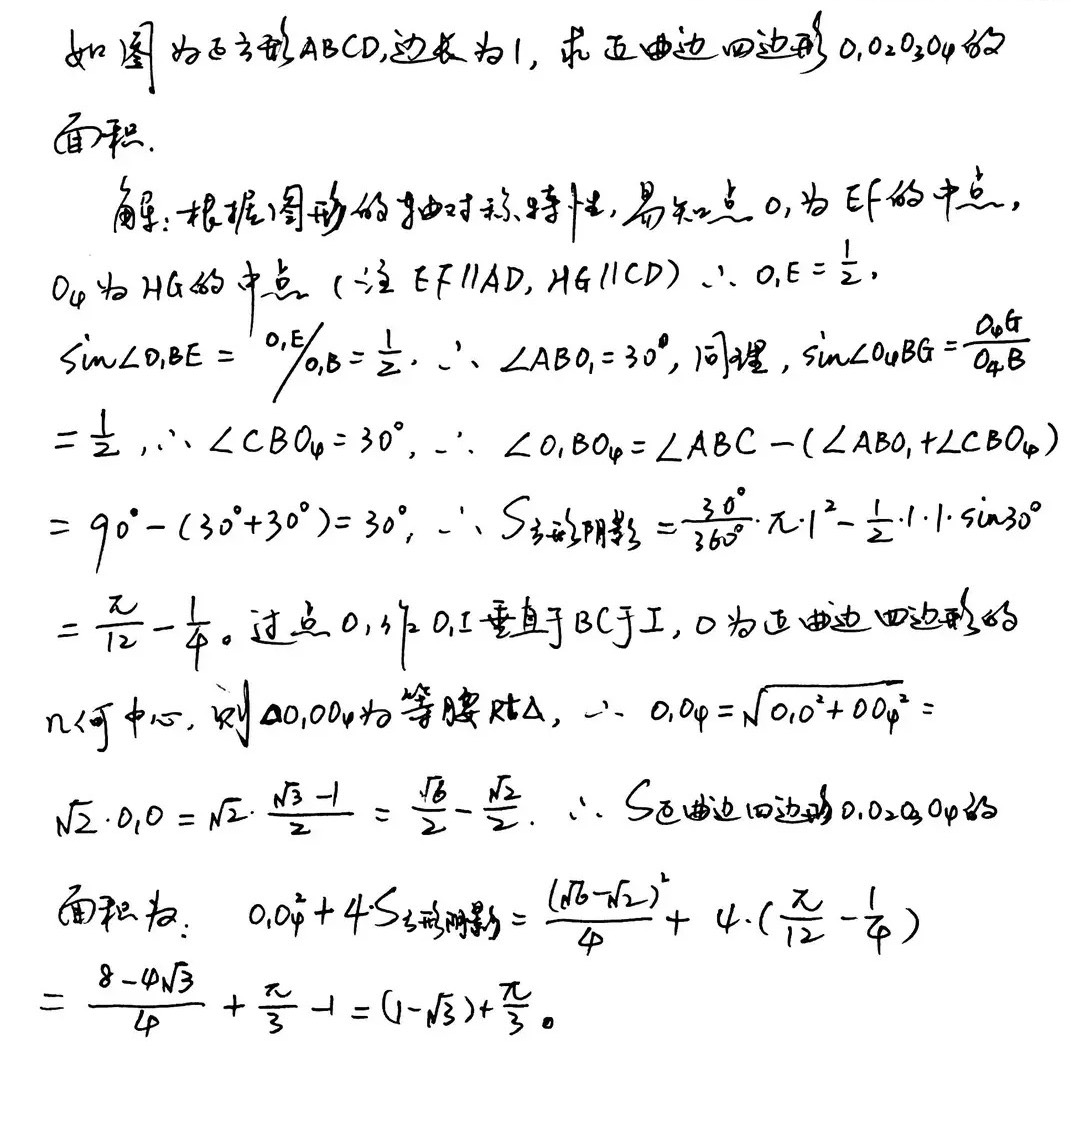 如图为正方形ABCD,边长为1,求正曲边四边形O₁O₂O₃O₄的
面积.
解:根据图形的轴对称特性,易知点O₁为EF的中点,
O₄为HG的中点(注EF//AD,HG//CD)∴O₁E=1/2,
sin∠O₁BE=O₁E/O₁B=1/2.∴∠ABO₁=30°,同理,sin∠O₄BG=O₄G/O₄B
=1/2,∴∠CBO₄=30°,∴∠O₁BO₄=∠ABC-(∠ABO₁+∠CBO₄)
=90°-(30°+30°)=30°,∴S弓形阴影=30°/360°·π·1²-1/2·1·1·sin30°
=π/12-1/4。过点O₁作O₁I垂直于BC于I,O为正曲边四边形的
几何中心,则△O₁OO₄为等腰Rt△,∴O₁O₄=√(O₁O²+OO₄²)=
√2·O₁O=√2·(√3-1)/2=√6/2-√2/2.∴S正曲边四边形O₁O₂O₃O₄的
面积为:O₁O₄²+4·S弓形阴影=(√6-√2)²/4+4·(π/12-1/4)
=(8-4√3)/4+π/3-1=(1-√3)+π/3。